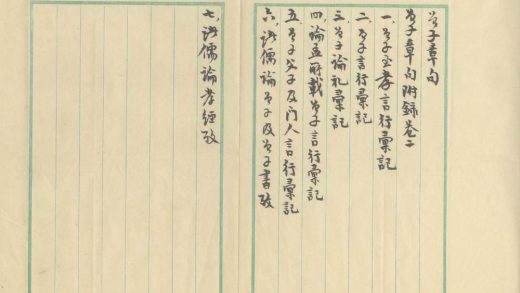 曾子章句
曾子章句附錄卷二
一、曾子至孝言行彙記
二、曾子言行彙記
三、曾子論礼彙記
四、論孟所載曾子言行彙記
五、曾子父子及门人言行彙記
六、諸儒論曾子及曾子書攷
七、諸儒論孝經攷